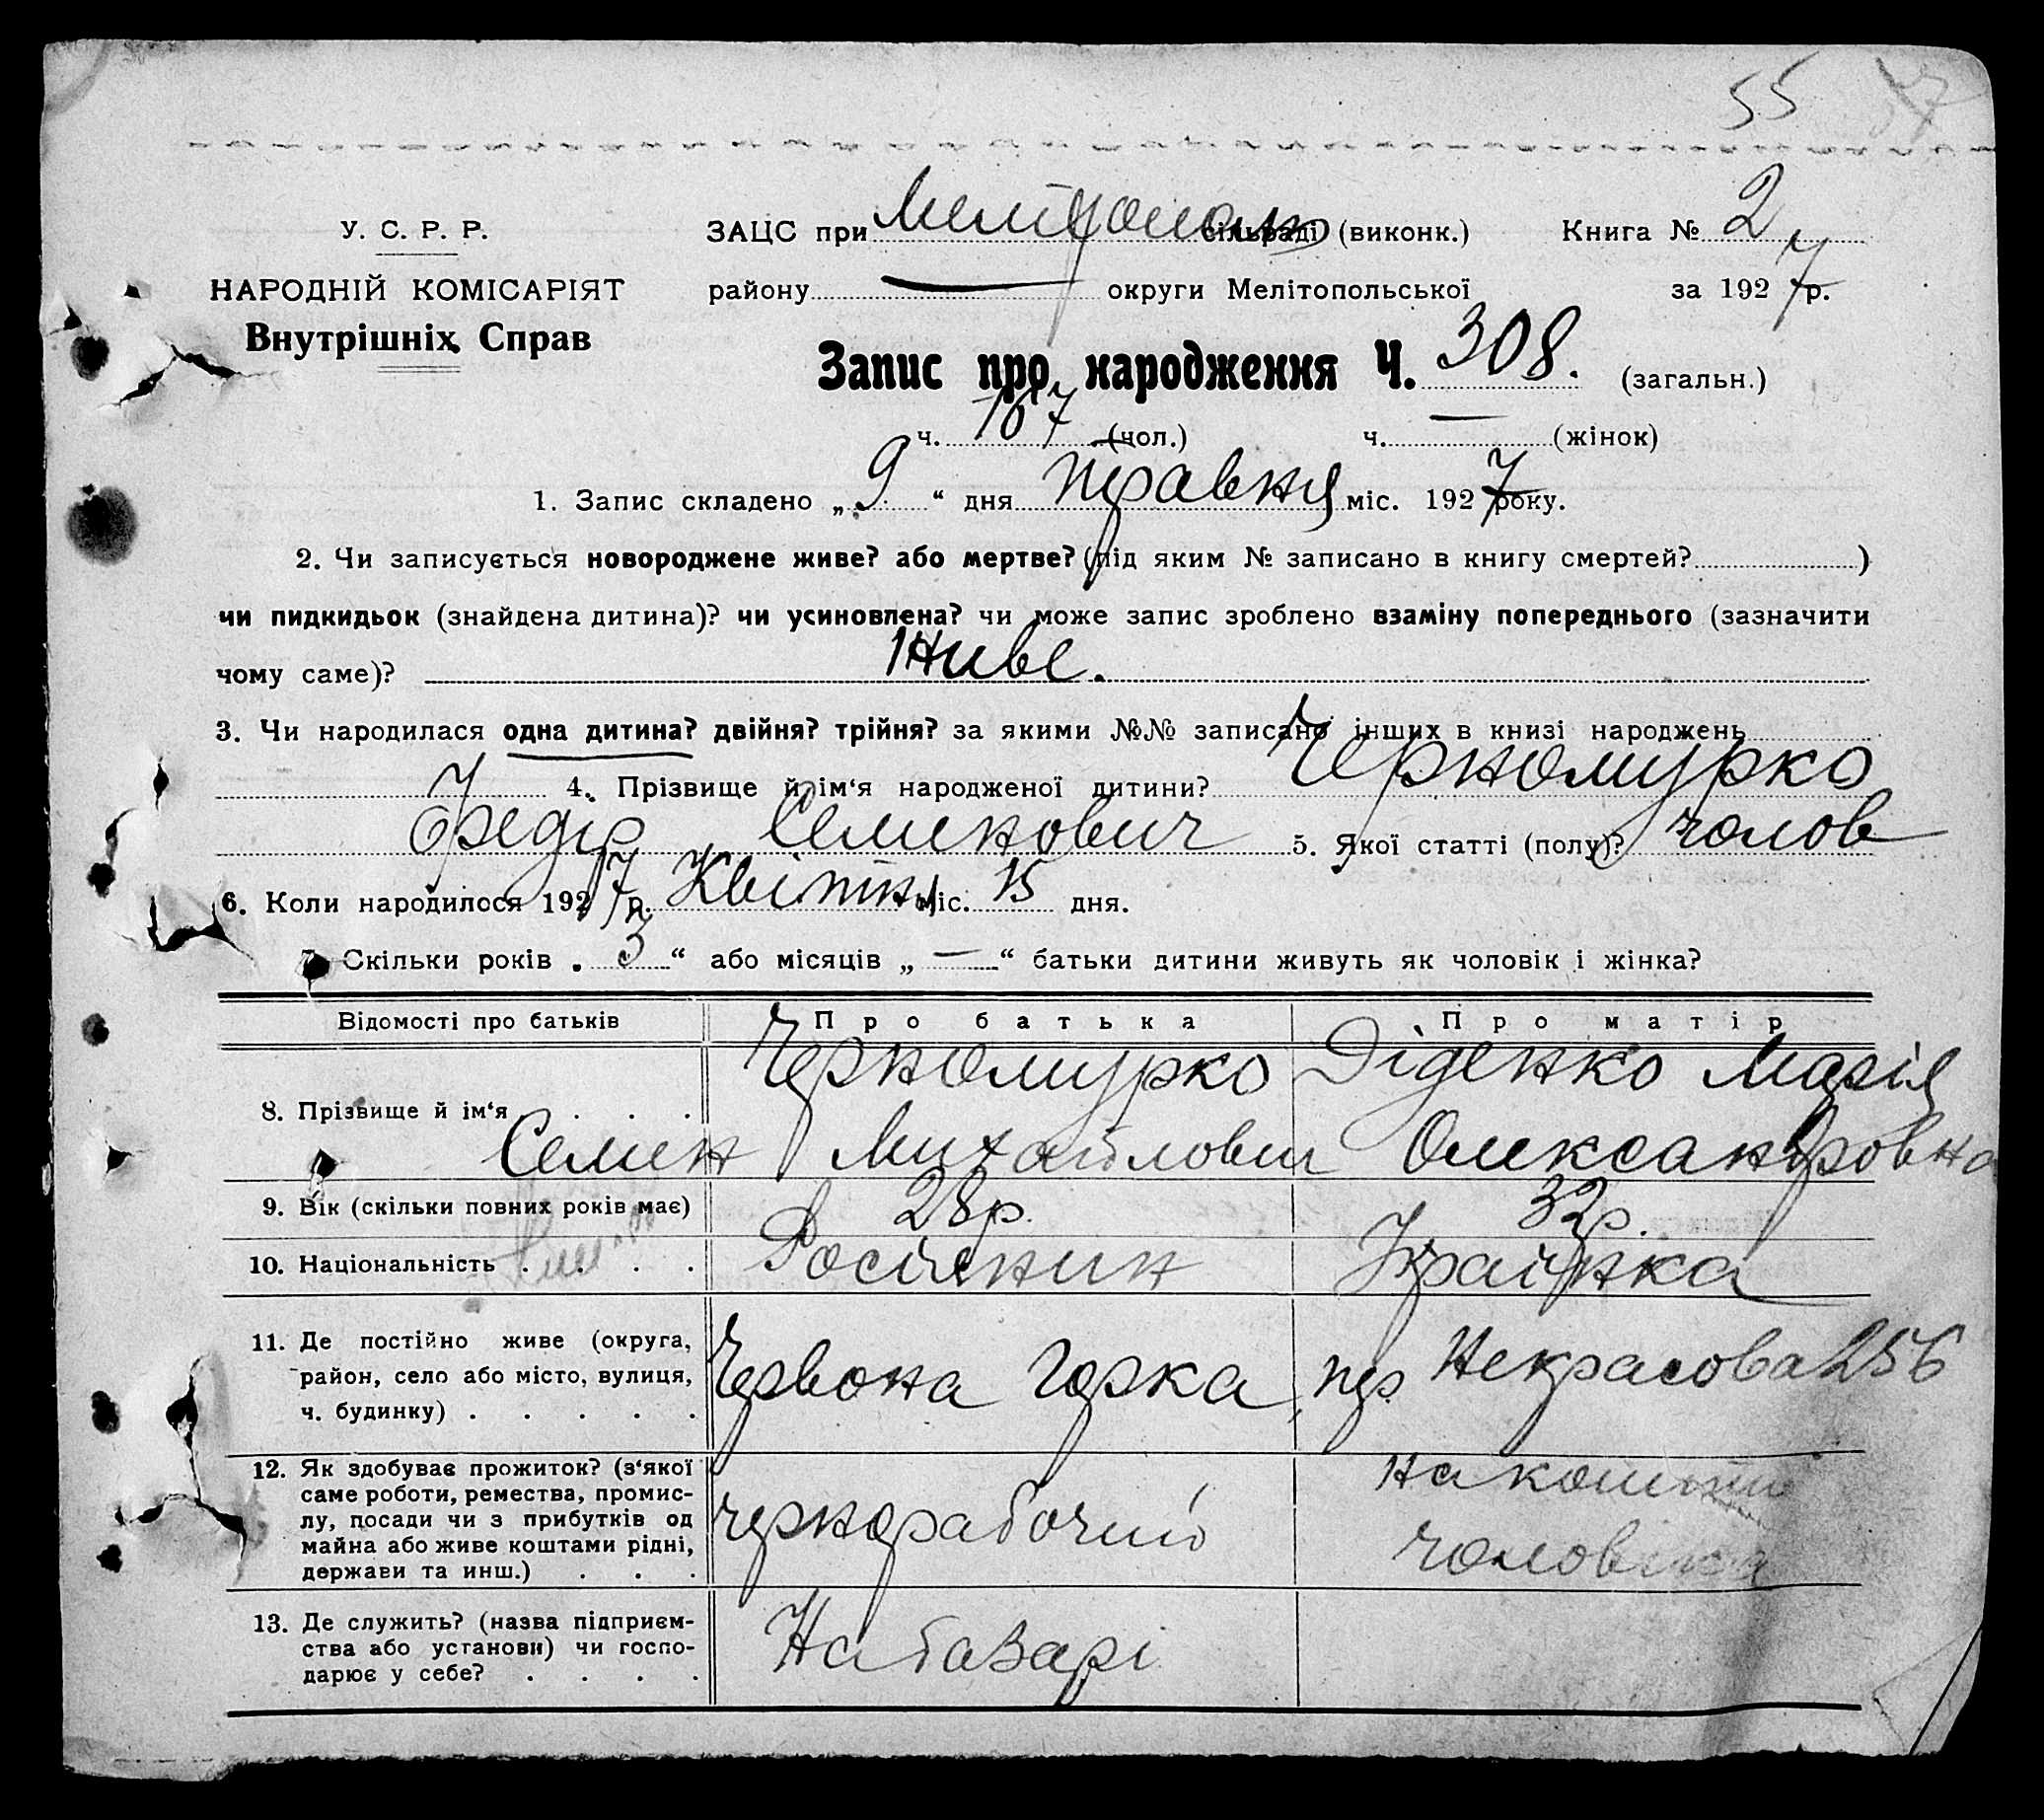 55
У. С. Р. Р.
НАРОДНІЙ КОМІСАРІЯТ
Внутрішніх Справ
ЗАЦС при сільраді (виконк.) Книга № 2
району — округи Мелітопольської за 1927 р.
Запис про народження Ч. 308. (загальн.)
ч. 167 (чол.) ч. — (жінок)
1. Запис складено „ 9 “ дня травня міс. 1927 року.
2. Чи записується новороджене живе? або мертве? (під яким № записано в книгу смертей? )
чи пидкидьок (знайдена дитина)? чи усиновлена? чи може запис зроблено взаміну попереднього (зазначити
чому саме)? Живе.
3. Чи народилася одна дитина? двійня? трійня? за якими №№ записано інших в книзі народжень
4. Прізвище й ім‘я народженої дитини? Черномурко
Федір Семенович 5. Якої статті (полу)? чолов
6. Коли народилося 1927 р. Квітня міс. 15 дня.
7. Скільки років „ 3 “ або місяців „ — “ батьки дитини живуть як чоловік і жінка?
Відомості про батьків Про батька Про матір
8. Прізвище й ім‘я . . . . Черномурко Діденко Марія
Семен Михайлович Олександровна
9. Вік (скільки повних років має) 28 р. 32 р.
10. Національність . . . . Росіянин Українка
11. Де постійно живе (округа,
район, село або місто, вулиця,
ч. будинку) . . . . . Червона Горка, пер. Некрасова 256
12. Як здобуває прожиток? (з‘якої
саме роботи, ремества, промис-
лу, посади чи з прибутків од
майна або живе коштами рідні,
держави та инш.) . . . чернорабочий на кошти
чоловіка
13. Де служить? (назва підприєм-
ства або установи) чи госпо-
дарює у себе? . . . . На базарі